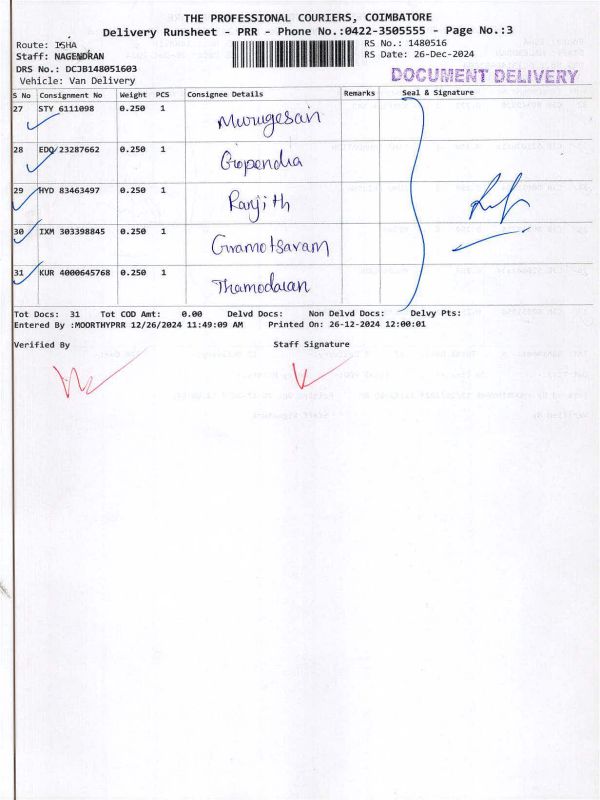 THE PROFESSIONAL COURIERS, COIMBATORE
Delivery Runsheet - PRR - Phone No.:0422-3505555 - Page No.:3
Route: ISHA
RS No.: 1480516
Staff: NAGENDRAN
RS Date: 26-Dec-2024
DRS No.: DCJB148051603
Vehicle: Van Delivery
DOCUMENT DELIVERY
S No Consignment No Weight PCS Consignee Details Remarks Seal & Signature
27 STY 6111098 0.250 1 Murugesan
28 EDQ 23287662 0.250 1 Gopendia
29 HYD 83463497 0.250 1 Ranjith
30 IXM 303398845 0.250 1 Gramotsavam
31 KUR 4000645768 0.250 1 Thamodaran
Tot Docs: 31 Tot COD Amt: 0.00 Delvd Docs: Non Delvd Docs: Delvy Pts:
Entered By :MOORTHYPRR 12/26/2024 11:49:09 AM Printed On: 26-12-2024 12:00:01
Verified By Staff Signature